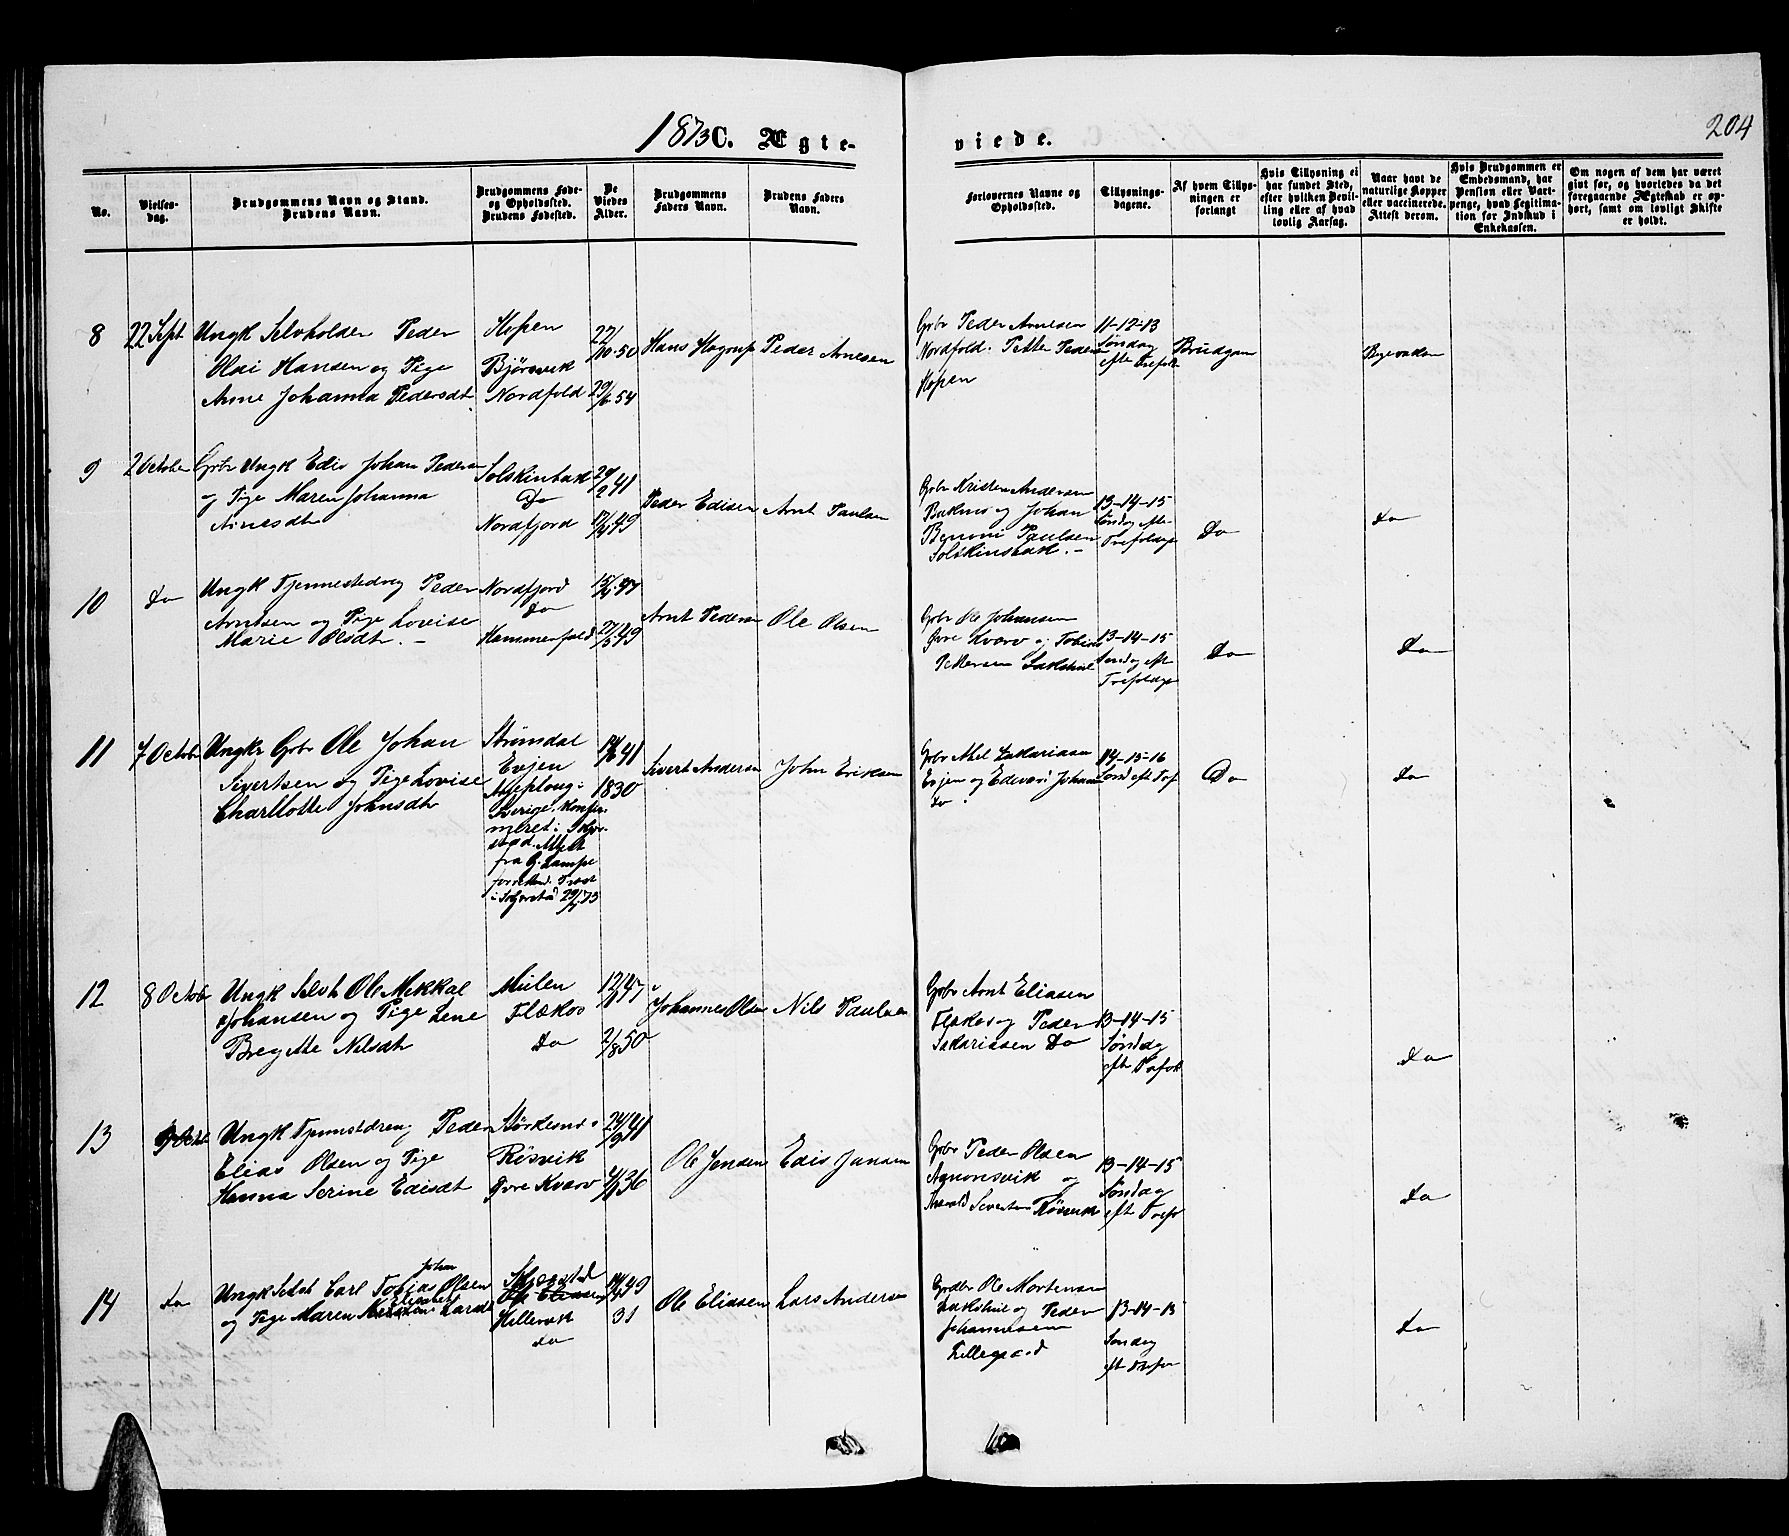 1873 C. Ægte-
viede.
204
No.
Vielses-
dag.
Brudgommens Navn og Stand.
Brudens Navn.
Brudgommens Føde-
og Opholdssted.
Brudens Fødested.
De
Viedes
Alder.
Brudgommens
Faders Navn.
Brudens Faders
Navn.
Forlovernes Navne og
Opholdssted.
Tillysnings-
dagene.
Af hvem Tillys-
ningen er
forlangt
Hvis Tillysning ei
har fundet Sted,
efter hvilken Bevil-
ling eller af hvad
lovlig Aarsag.
Naar havt de
naturlige Kopper
eller vaccinerede.
Attest derom.
Hvis Brudgommen er
Embedsmand, har
Pension eller Vart-
penge, hvad Legitima-
tion for Indskud i
Enkekassen.
Om nogen af dem har været
gift før, og hvorledes da det
foregaaende Ægteskab er op-
hørt, samt om lovligt Skifte
er holdt.
8
22 Sept
Ungk Selvholder Peder
Olai Hansen og Pige
Anne Johanna Pedersdt
Hopen
Bjørsvik
Nordfold
22/10-50
29/6-54
Hans Hagrup
Peder Arnesen
Gbr Peder Arnesen
Nordfold. Petter Peders
Hopen
11-12-13
Søndag
eft Trefolt
Brudgom
9
2 October
Gbr Ungk Edis Johan Peders
og Pige Maren Johanna
Arnesdt
Solskinbak
Do
Nordfjord
29/2 41
49
Peder Edisen
Arnt Paulsen
Gbr Kristen Andersen
Baknes og Johan
Benoni Paulsen
Solskinsbak. -
13-14-15
Søndag efte
Trefoldigh
Do
Do
10
Do
Ungk Tjenestedreng Peder
Arntsen og Pige Lovise
Marie Olsdt. -
Nordfjord
Do
Hammerfold
27/5 49
Arnt Peders
Ole Olsen
Gbr Ole Johansen
Øvre Kvarv og Tobias
Pettersen Lakshol
13-14-15
Søndag eft
Trefoldigh
Do
Do
11
7 October
Ungkr Gbr Ole Johan
Sivertsen og Pige Lovise
Charllotte Johnsdt
Strømdal
Evjen
Arjeploug i
Sverige. Konfir-
meret i Skjer-
stad. Attest
fra G. Lampe
i Skjerstad
41
1830
Sivert Anderse
John Eriksen
Gbr Abel Zakariasen
Evjen og Edevard Johans
Do
14-15-16
Sønd eft Tref
Do
Do
12
8 Octob
Ungk Selvh Ole Mekkal
Johansen og Pige Lene
Bregitte Nilsdt
Mulen
Flækos
Do
47
2/8 50
Johannes Olsen
Nils Paulsen
Gbr Arnt Eliasen
Flækos og Peder
Sakariassen Do
13-14-15
Søndag
eft Trefol
Do
13
9 Octob
Ungk Tjenestdreng Peder
Elias Olsen og Pige
Hanna Serine Edisdt
Røsvik
Øvre Kvarv
24/9 41
36
Ole Jensen
Edis Jansen
Gbr Peder Olsen
Agnonsvik og
Sivertsen Røsvik
13-14-15
Søndag
eft Trefo
Do
14
Do
Johan
Ungk Selvst Carl Tobias Olsen
og Pige Maren Larsdt
Skjærstad
Ole Eliasen
Hellevik
Do
49
31
Ole Eliasen
Lars Anderse
Ole Mortensen
Lakshole og Peder
Johannesen
Lillegaard
13-14-15
Søndag
eft Trefo
Do